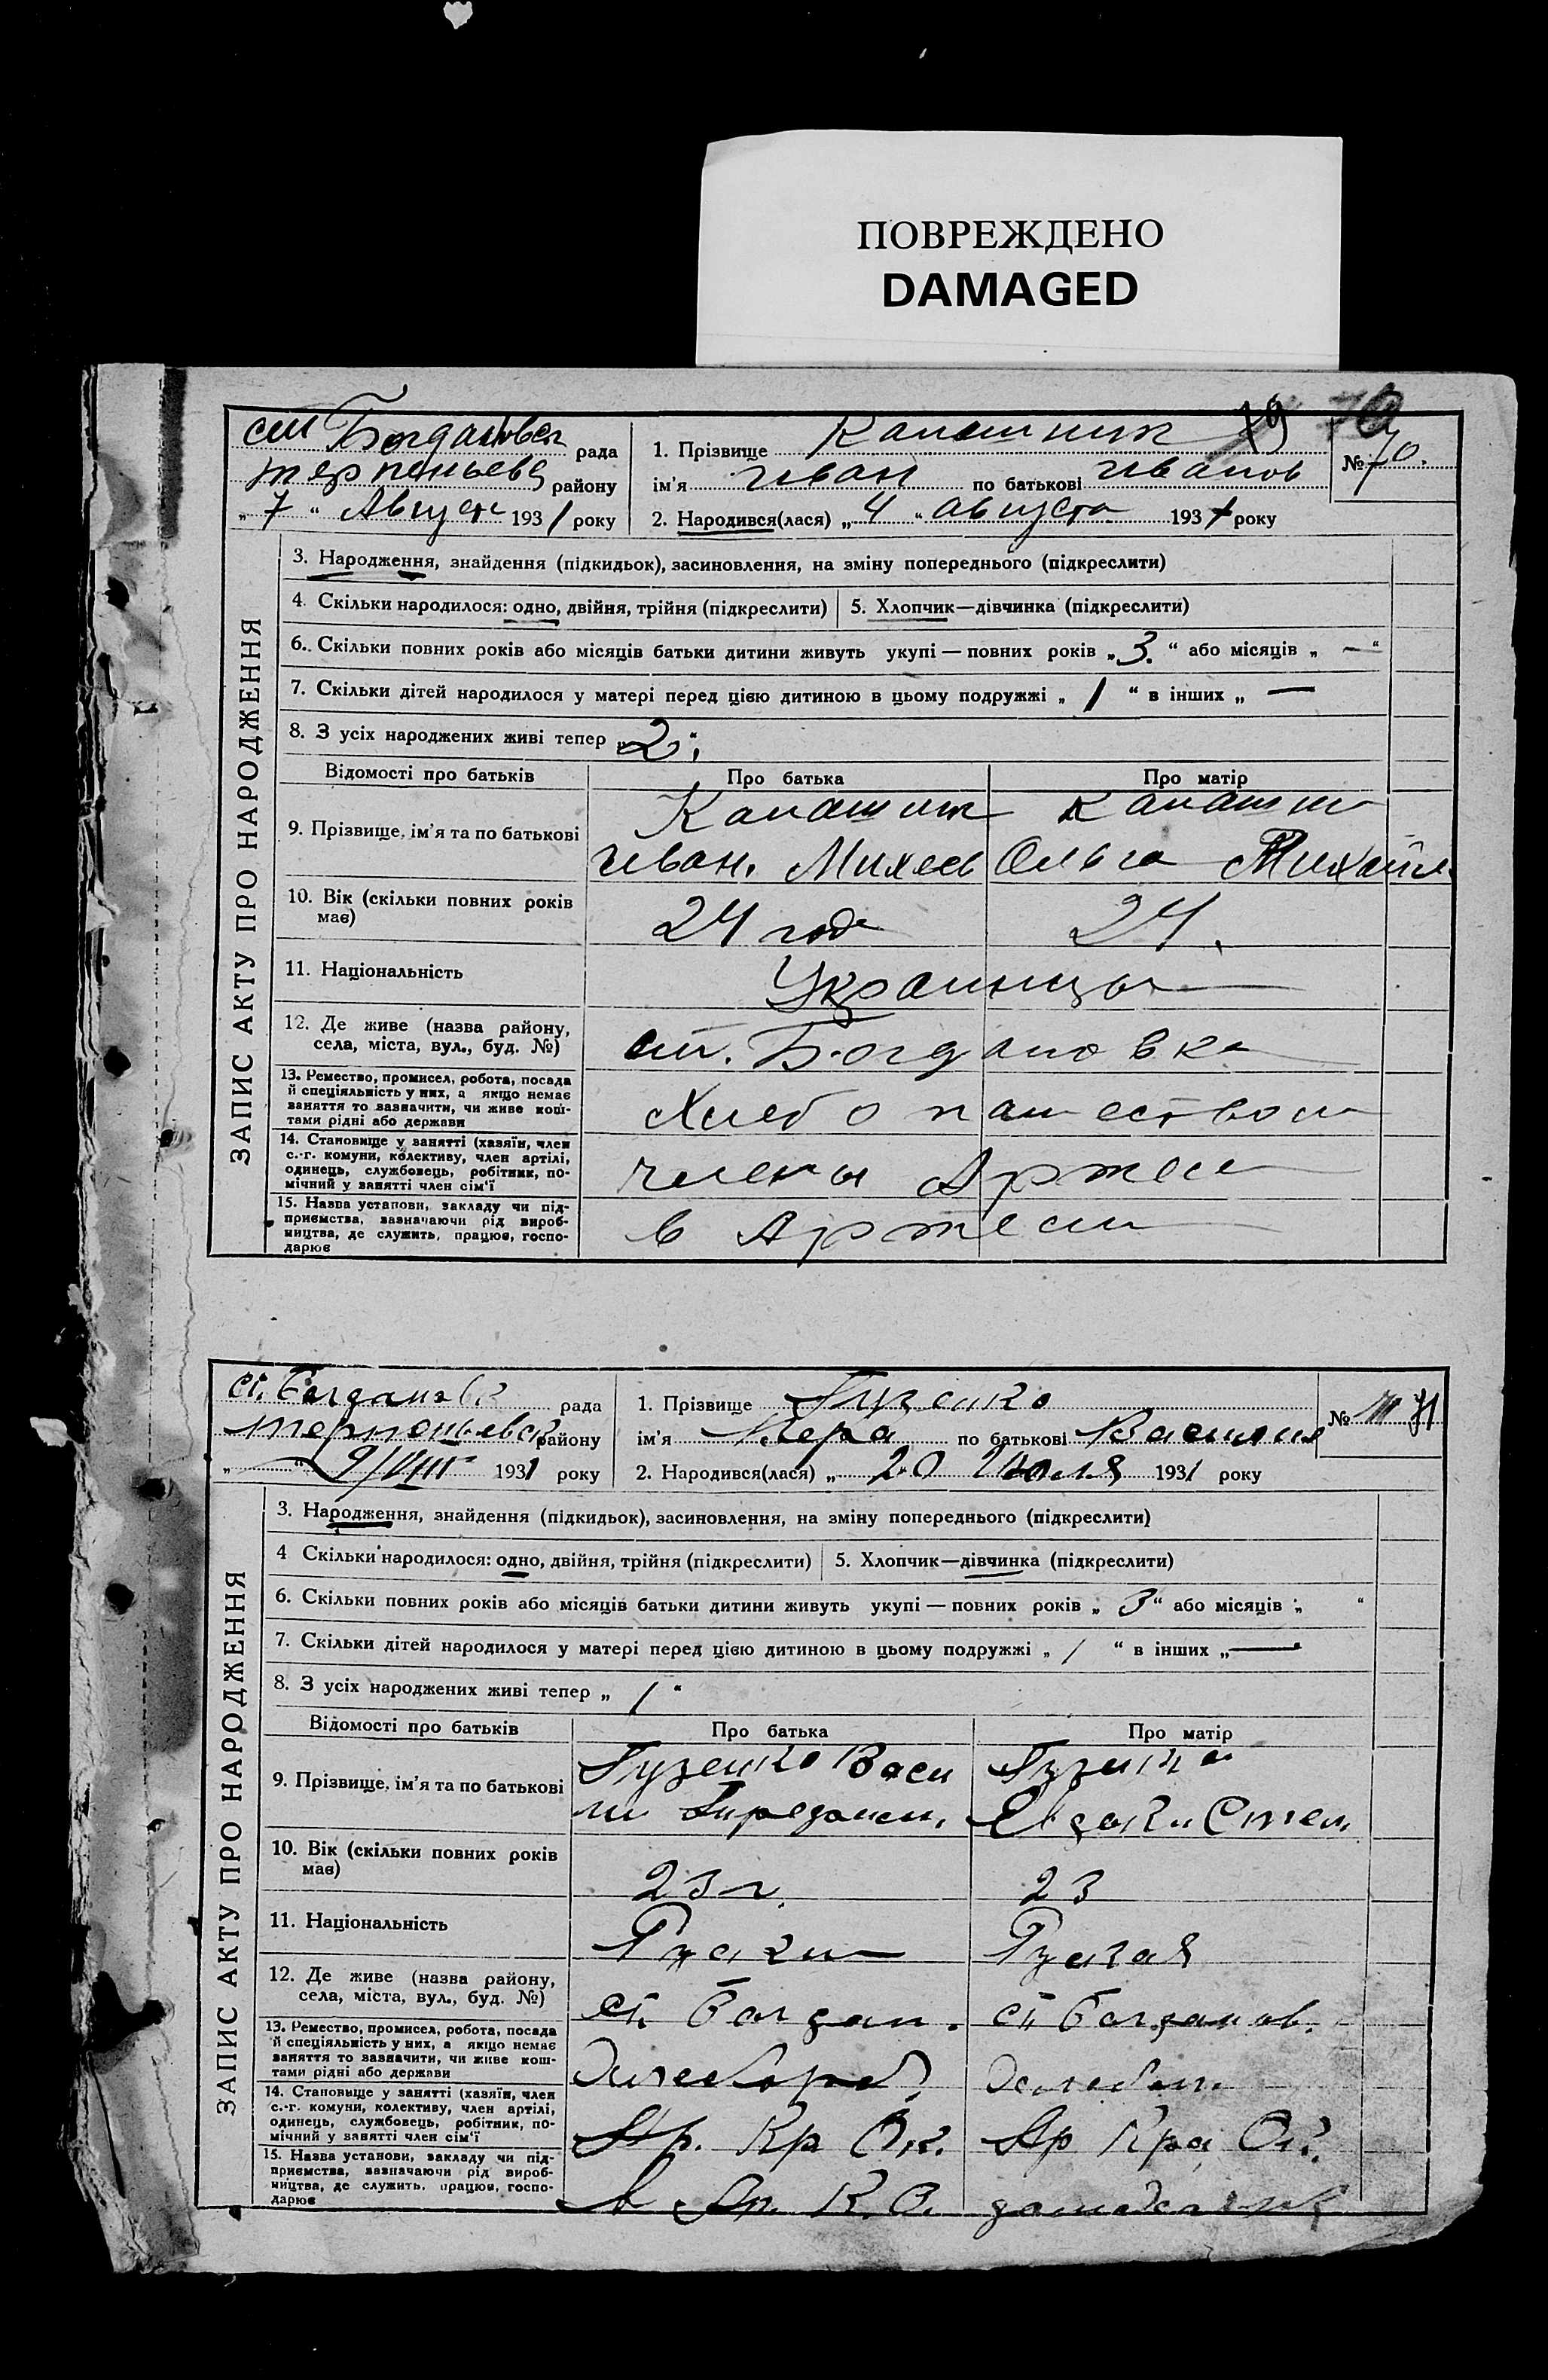 ПОВРЕЖДЕНО
DAMAGED
79 70
ст Богдановск рада
терпеньевс району
„ 7 “ Августа 1931 року
1. Прізвище
ім'я Иван по батькові Иванов
2. Народився(лася) „ 4 “ августа 1931 року
№ 70.
ЗАПИС АКТУ ПРО НАРОДЖЕННЯ
3. Народження, знайдення (підкидьок), засиновлення, на зміну попереднього (підкреслити)
4. Скільки народилося: одно, двійня, трійня (підкреслити) 5. Хлопчик—дівчинка (підкреслити)
6. Скільки повних років або місяців батьки дитини живуть укупі — повних років „ 3. “ або місяців „ — “
7. Скільки дітей народилося у матері перед цією дитиною в цьому подружжі „ 1 “ в інших „ —
8. З усіх народжених живі тепер „ 2 “
Відомості про батьків Про батька Про матір
9. Прізвище, ім'я та по батькові
Иван. Ольга Михайл
10. Вік (скільки повних років має) 24 года 24.
11. Національність Украинцы
12. Де живе (назва району, села, міста, вул., буд. №) ст. Богдановка
13. Ремество, промисел, робота, посада й спеціяльність у них, а якщо немає заняття то зазначити, чи живе коштами рідні або держави
14. Становище у занятті (хазяїн, член с.-г. комуни, колективу, член артілі, одинець, службовець, робітник, помічний у занятті член сім'ї члены Артели
15. Назва установи, закладу чи підприємства, зазначаючи рід виробництва, де служить, працює, господарює в Артели
ст. Богдановк рада
терпеньевск району
„ — “ 9/VIII 1931 року
1. Прізвище Гузенко
ім'я Вера по батькові Василил
2. Народився(лася) „ 20 Июля 1931 року
№ 71
ЗАПИС АКТУ ПРО НАРОДЖЕННЯ
3. Народження, знайдення (підкидьок), засиновлення, на зміну попереднього (підкреслити)
4 Скільки народилося: одно, двійня, трійня (підкреслити) 5. Хлопчик—дівчинка (підкреслити)
6. Скільки повних років або місяців батьки дитини живуть укупі — повних років „ 3 “ або місяців „ “
7. Скільки дітей народилося у матері перед цією дитиною в цьому подружжі „ 1 “ в інших „ —
8. З усіх народжених живі тепер „ 1 “
Відомості про батьків Про батька Про матір
9. Прізвище, ім'я та по батькові Гузенко Васи Гузенко
10. Вік (скільки повних років має) 23 г. 23
11. Національність Руский Руская
12. Де живе (назва району, села, міста, вул., буд. №) ст. Богдан. ст Богданов.
13. Ремество, промисел, робота, посада й спеціяльність у них, а якщо немає заняття то зазначити, чи живе коштами рідні або держави Хлебороб
14. Становище у занятті (хазяїн, член с.-г. комуни, колективу, член артілі, одинець, службовець, робітник, помічний у занятті член сім'ї Ар. Кр Ок. Ар Кра Ок.
15. Назва установи, закладу чи підприємства, зазначаючи рід виробництва, де служить, працює, господарює в Ар. К. О.